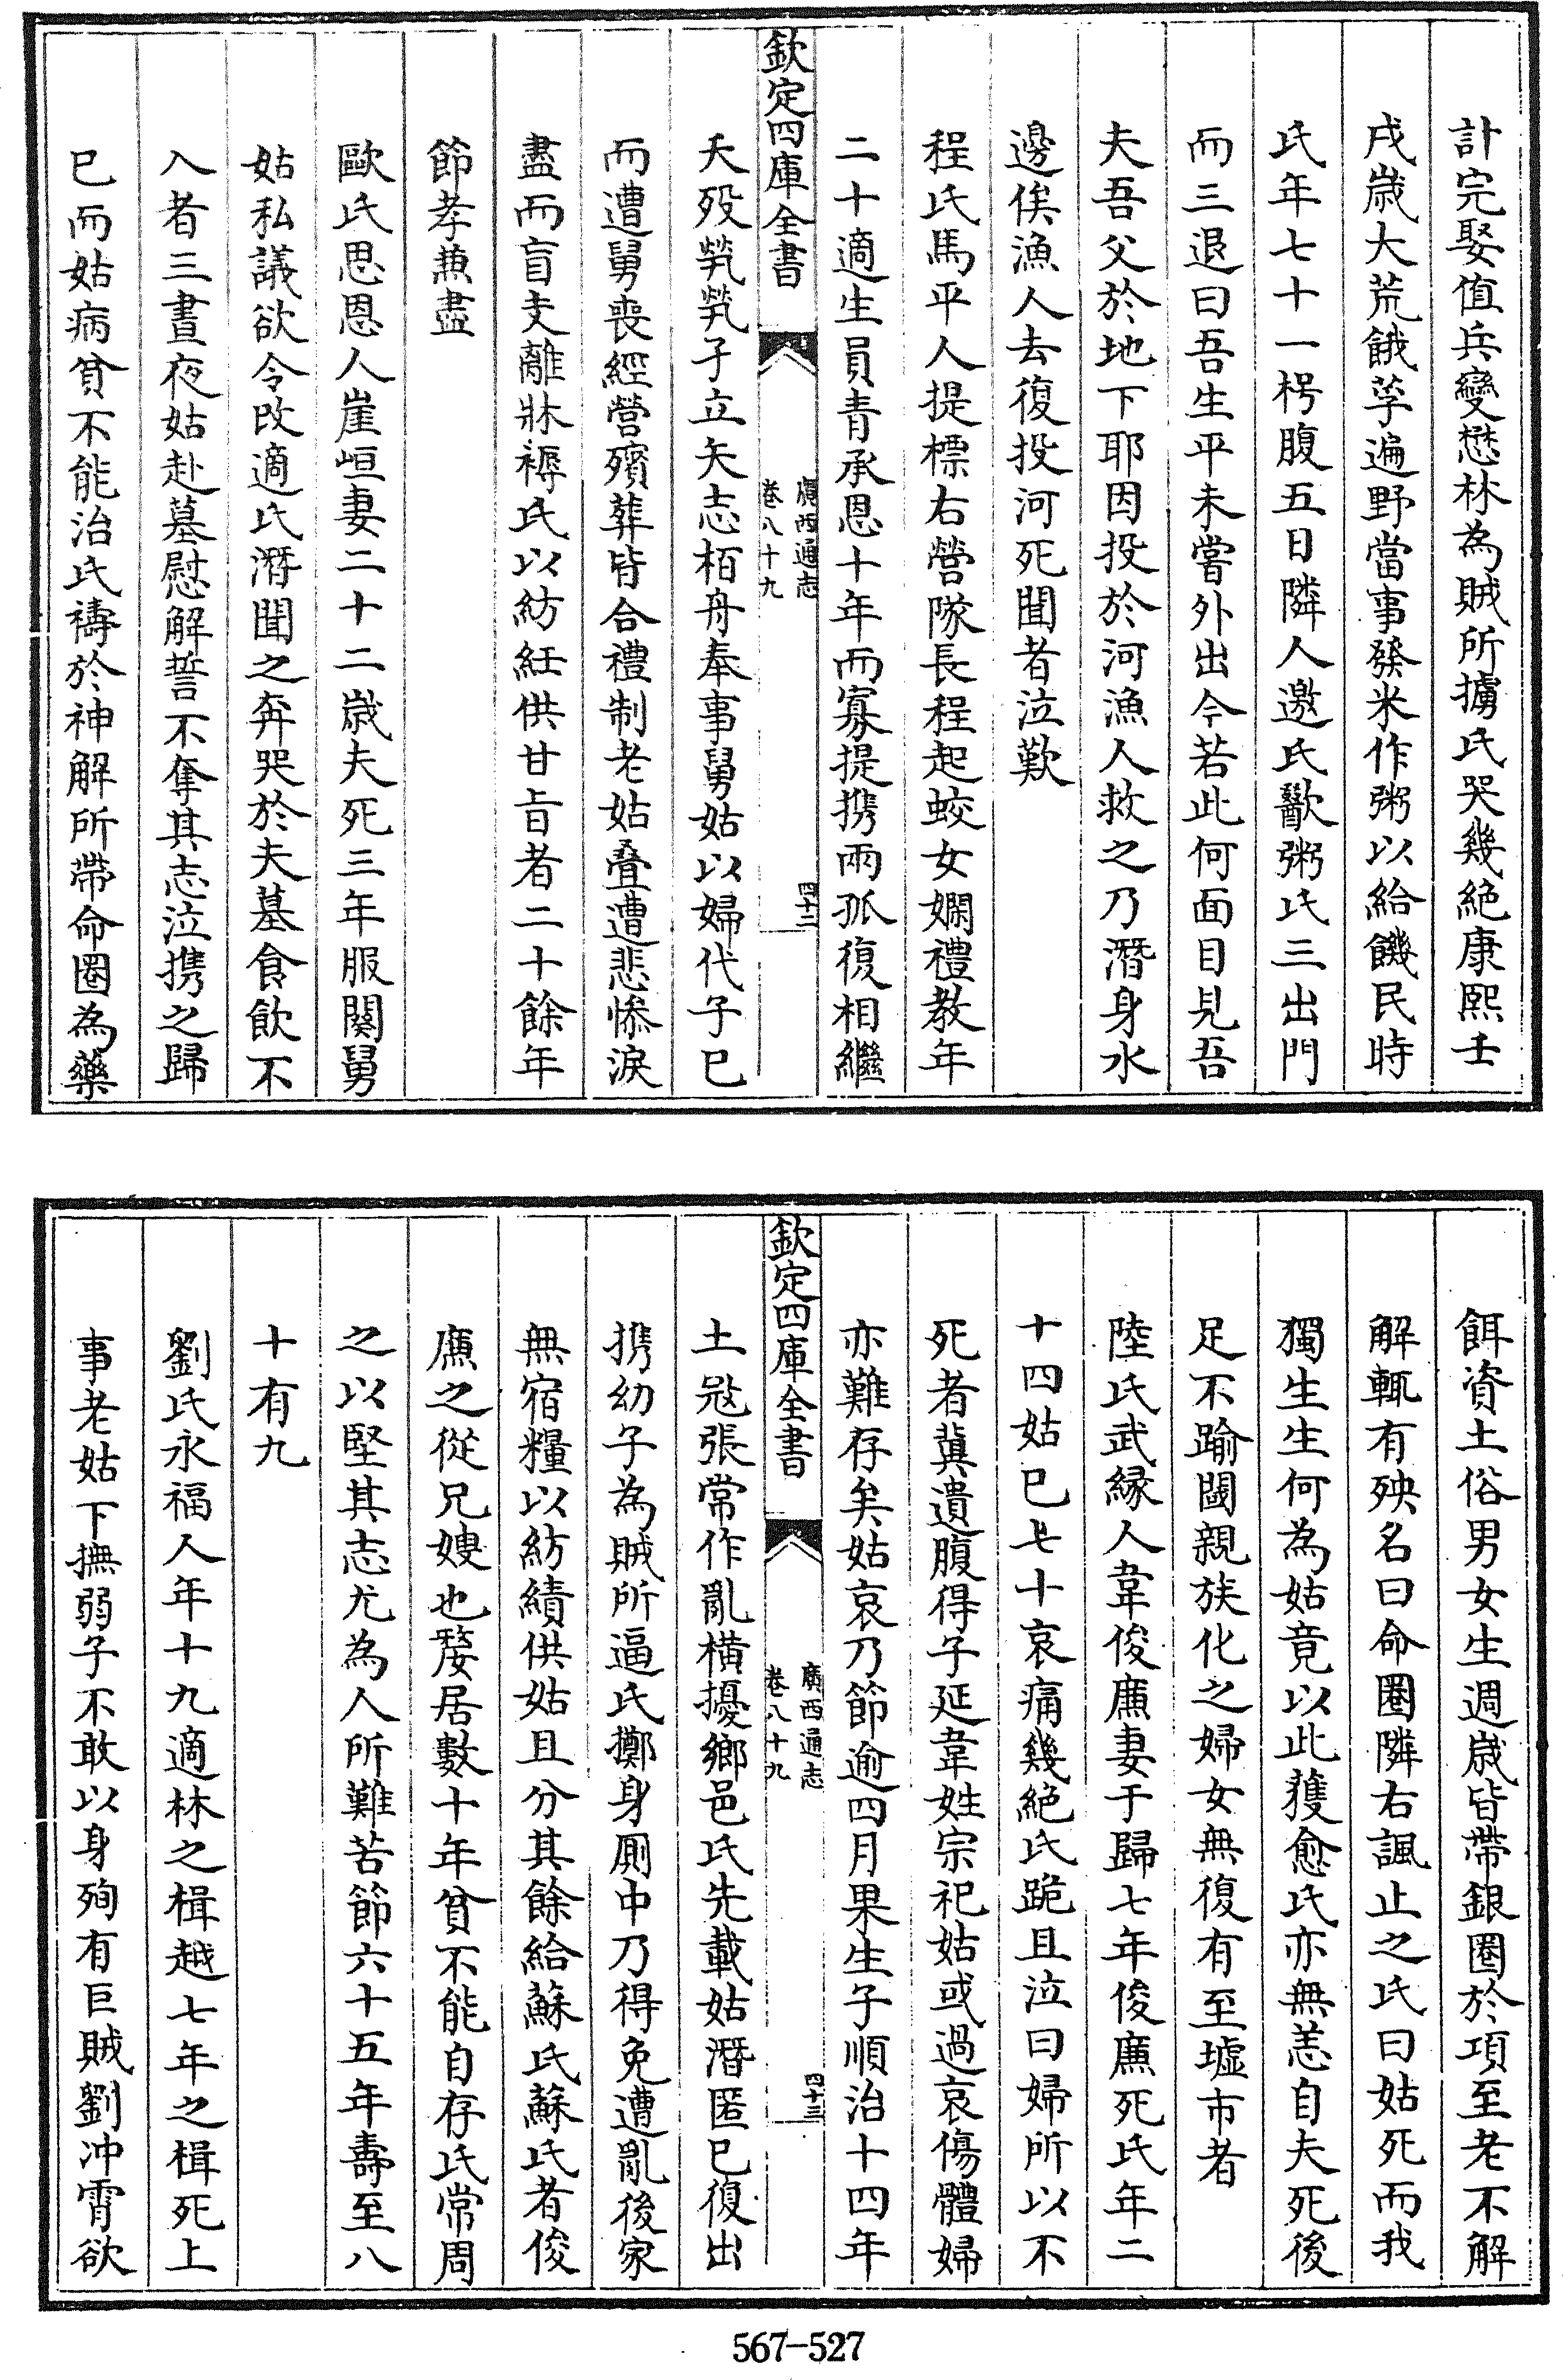 計完娶值兵變懋林為賊所擄氏哭幾絶康熙壬
戌嵗大荒餓莩遍野當事發米作粥以給饑民時
氏年七十一枵腹五日隣人邀氏歠粥氏三出門
而三退曰吾生平未嘗外出今若此何面目見吾
夫吾父於地下耶因投於河漁人救之乃潛身水
邊俟漁人去復投河死聞者泣歎
程氏馬平人提標右營隊長程起蛟女嫻禮教年
二十適生員青承恩十年而寡提携兩孤復相繼
欽定四庫全書
廣西通志
卷八十九
四十二
夭殁煢煢孑立矢志栢舟奉事舅姑以婦代子已
而遭舅喪經營殯葬皆合禮制老姑叠遭悲慘淚
盡而盲叓離牀褥氏以紡紝供甘旨者二十餘年
節孝兼盡
歐氏思恩人崖峘妻二十二嵗夫死三年服闋舅
姑私議欲令改適氏潛聞之奔哭於夫墓食飲不
入者三晝夜姑赴墓慰解誓不奪其志泣携之歸
已而姑病貧不能治氏禱於神解所帶命圈為藥
餌資土俗男女生週嵗皆帶銀圈於項至老不解
解輒有殃名曰命圈隣右諷止之氏曰姑死而我
獨生生何為姑竟以此獲愈氏亦無恙自夫死後
足不踰閾親族化之婦女無復有至墟市者
陸氏武緣人韋俊廉妻于歸七年俊廉死氏年二
十四姑已七十哀痛幾絶氏跪且泣曰婦所以不
死者冀遺腹得子延韋姓宗祀姑或過哀傷體婦
亦難存矣姑哀乃節逾四月果生子順治十四年
欽定四庫全書
廣西通志
卷八十九
四十三
土㓂張常作亂横擾鄉邑氏先載姑潛匿已復出
携幼子為賊所逼氏擲身厠中乃得免遭亂後家
無宿糧以紡績供姑且分其餘給蘇氏蘇氏者俊
廉之從兄嫂也嫠居數十年貧不能自存氏常周
之以堅其志尤為人所難苦節六十五年壽至八
十有九
劉氏永福人年十九適林之楫越七年之楫死上
事老姑下撫弱子不敢以身殉有巨賊劉冲霄欲
567-527